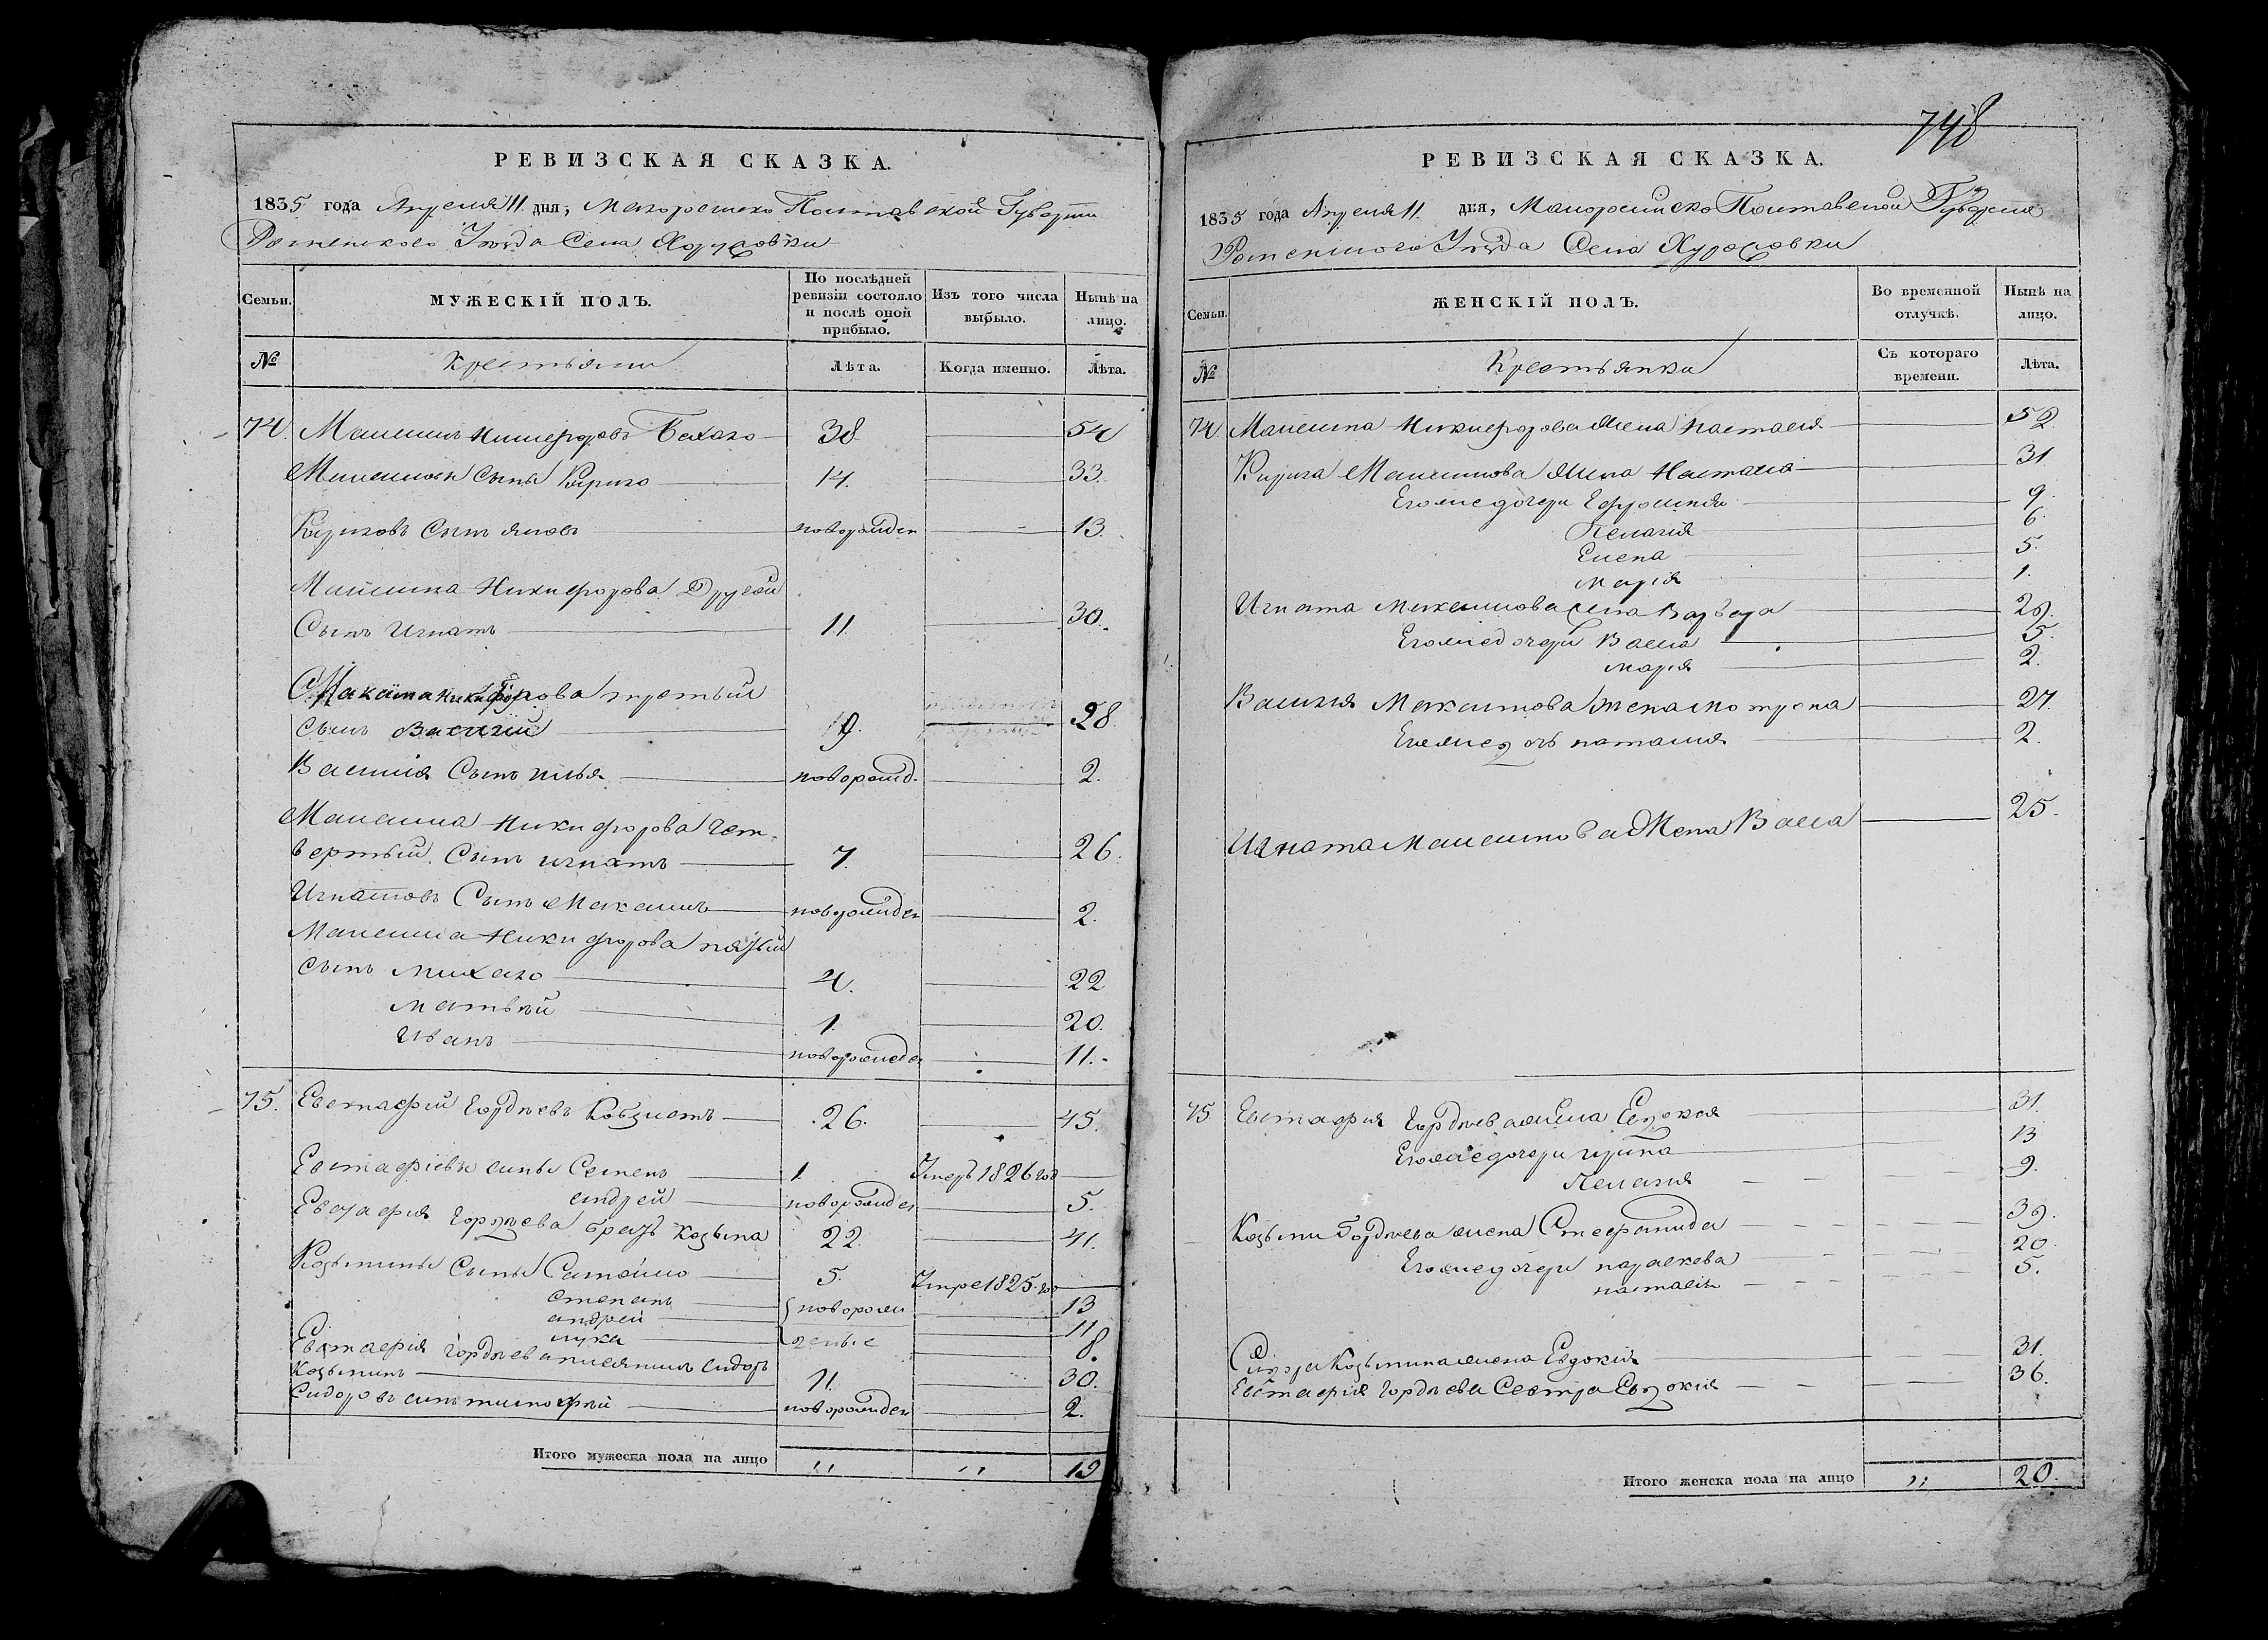 РЕВИЗСКАЯ СКАЗКА.
1835 года Апреля 11 дня, Малоросийско Полтавской Губернии
Роменского Уезда Села Хоружовки
Семьи.
МУЖЕСКІЙ ПОЛЪ.
По послѣдней ревизіи состояло и послѣ оной прибыло.
Изъ того числа выбыло.
Нынѣ на лицо.
№
Крестьяни
Лѣта.
Когда именно.
Лѣта.
74. Максимъ Никифоровъ 38 54
Максимовъ Сынъ Кирило 14. 33.
Кириловъ Сынъ Яковъ новорожден 13.
Максима Никифорова Другой
Сынъ Игнатъ 11. 30.
Максима Никифорова третый
сынъ Василий 9. 28
Василия Сынъ илья новорожд. 2.
Максима Никифорова Чет-
вертый Сынъ игнатъ 7. 26.
Игнатовъ Сынъ Максимъ новорожден 2.
Максима Никифорова пятый
сынъ Михайло 4. 22
Матвѣй 1. 20.
Иванъ новорожден 11.
75. Евстафий Гордѣевъ 26. 45.
Евстафіевы сыны Семенъ 1 Умеръ 1826 год
андрей новорожден 5.
Евстафия Гордѣева братъ Козьма 22. 41.
Козьмины Сыны Самойло 5. Умре 1825 год
степанъ новорож 13
андрей 11
лука денные 8.
Евстафія Гордѣева племянникъ сидоръ
Козьминъ 11. 30.
Сидоровъ сынъ тимофѣй новорожден 2.
Итого мужеска пола на лицо " " 19
748
РЕВИЗСКАЯ СКАЗКА.
1835 года Апреля 11 дня, Малоросийско Полтавской Губернии
Роменского Уезда Села Хоружовки
Семьи.
ЖЕНСКІЙ ПОЛЪ.
Во временной отлучкѣ.
Нынѣ на лицо.
№
Крестьянки
Съ котораго времени.
Лѣта.
74 Максима Никифорова Жена Настасия 52
Кирила Максимова Жена Наталия 31
Его же дочери Ефросиния 9.
Пелагия 6.
Елена 5.
Мария 1.
Игната Максимова жена Варвара 29.
Его же дочери Васса 5.
Мария 2.
Василия Максимова жена Мотрона 27.
Его же дочь наталия 2.
Игната Максимова Жена Васса 25.
75 Евстафия Гордѣева жена Евдокия 31.
Его же дочери ирина 13
Пелагия 9.
Козьми Гордѣева жена Стефанида 39.
Его же дочери параскева 20
настасия 5.
Сидора Козьмина жена Евдокия 31.
Евстафия Гордѣева Сестра Евдокия 36.
Итого женска пола на лицо " 20.